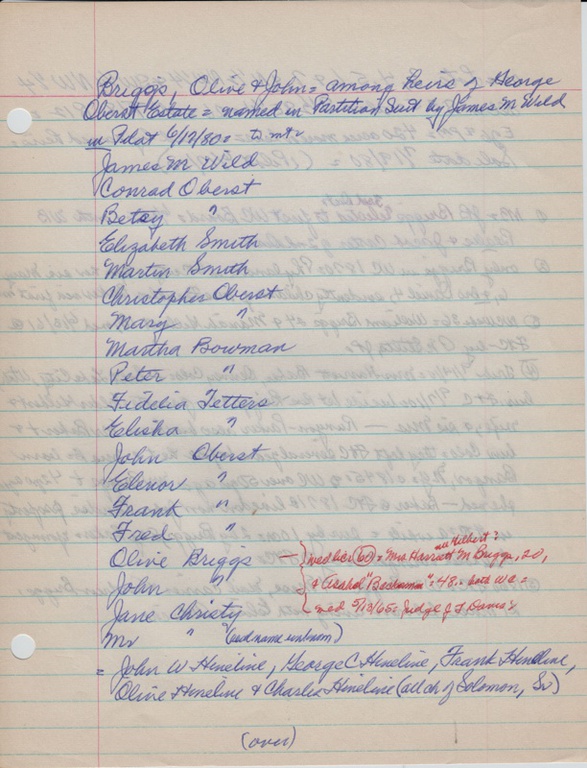 Briggs, Olive & John = among heirs of George
Oberst Estate = named in Partition Suit by James M Wild
in Pilot 6/17/80 =
James M Wild
Conrad Oberst
Betsy "
Elizabeth Smith
Martin Smith
Christopher Oberst
Mary "
Martha Bowman
Peter "
Fidelia Tetters
Elisha "
John Oberst
Elenor "
Frank "
Fred "
Olive Briggs —
John "
Jane Christy
Mr " (and name unknown)
= John W Heneline, George C Heneline, Frank Heneline,
Olive Heneline & Charles Heneline (all ch of Solomon, Sr)
(over)
Hilbert?
med lics (60) = Mrs Harriett M Briggs, 20,
& Asahel "Buchanan" = 48 = both WC =
med 9/12/65 = Judge J F Davis =